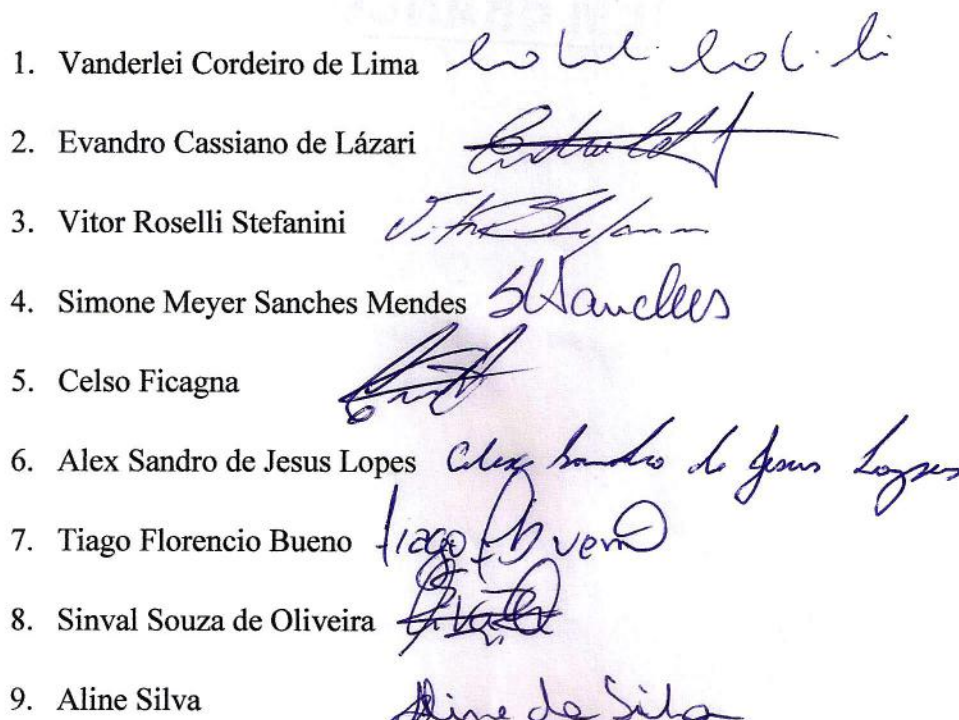 1. Vanderlei Cordeiro de Lima
2. Evandro Cassiano de Lázari
3. Vitor Roselli Stefanini
4. Simone Meyer Sanches Mendes SMSanches
5. Celso Ficagna
6. Alex Sandro de Jesus Lopes Alex Sandro de Jesus Lopes
7. Tiago Florencio Bueno Tiago F. Bueno
8. Sinval Souza de Oliveira
9. Aline Silva Aline da Silva